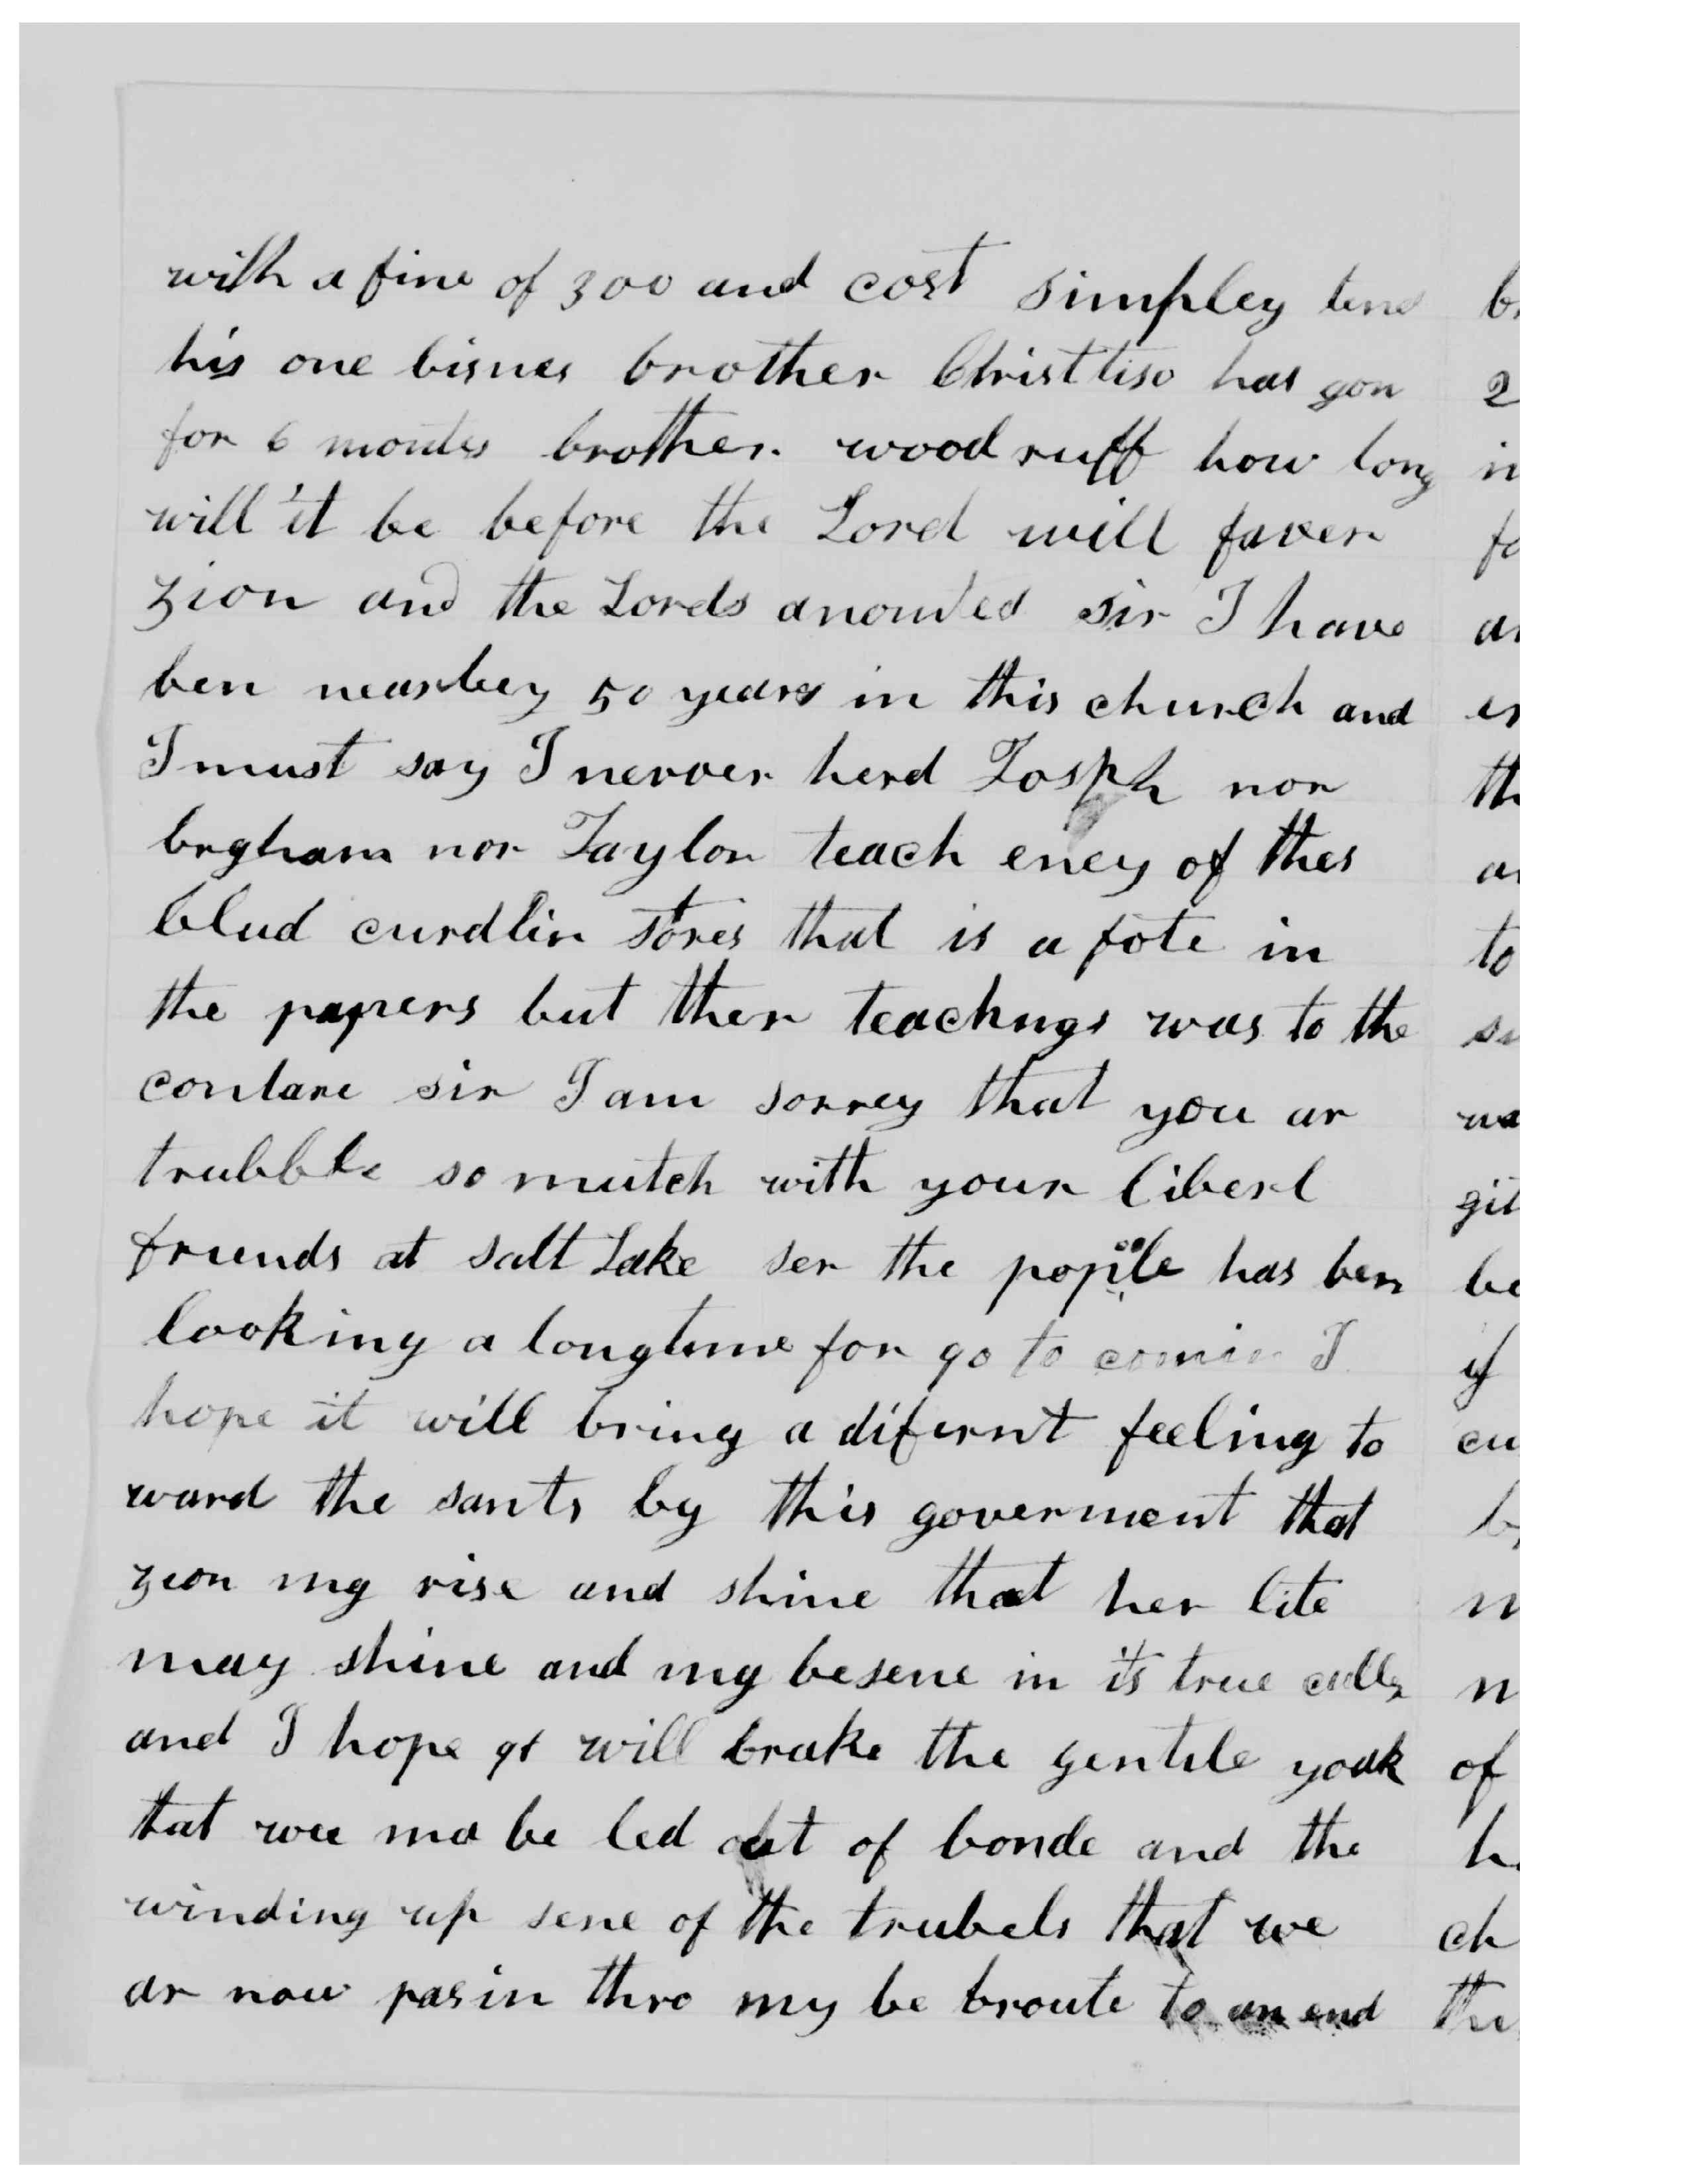 with a fine of 300 and cost simpley tend
his one bisnes brother Christtiso has gon
for 6 montes brother woodruff how long
will it be before the Lord will faver
zion and the Lords anointed sir I have
ben nearley 50 years in this church and
I must say I nevver herd Josph nor
brgham nor Taylor teach eney of thes
blud curdlin stores that is a fote in
the papers but ther teachngs was to the
contare sir I am sorrey that you ar
trubble so mutch with your liberl
friends at salt Lake ser the pople has ben
looking a longtime for 90 to comin I
hope it will bring a difernt feeling to
ward the sants by this goverment that
zion my rise and shine that her lite
may shine and my besene in its true
and I hope 91 will brake the gentile yoak
that wee ma be led out of bonde and the
winding up sene of the trubels that we
ar now pasin thro my be broute to an end